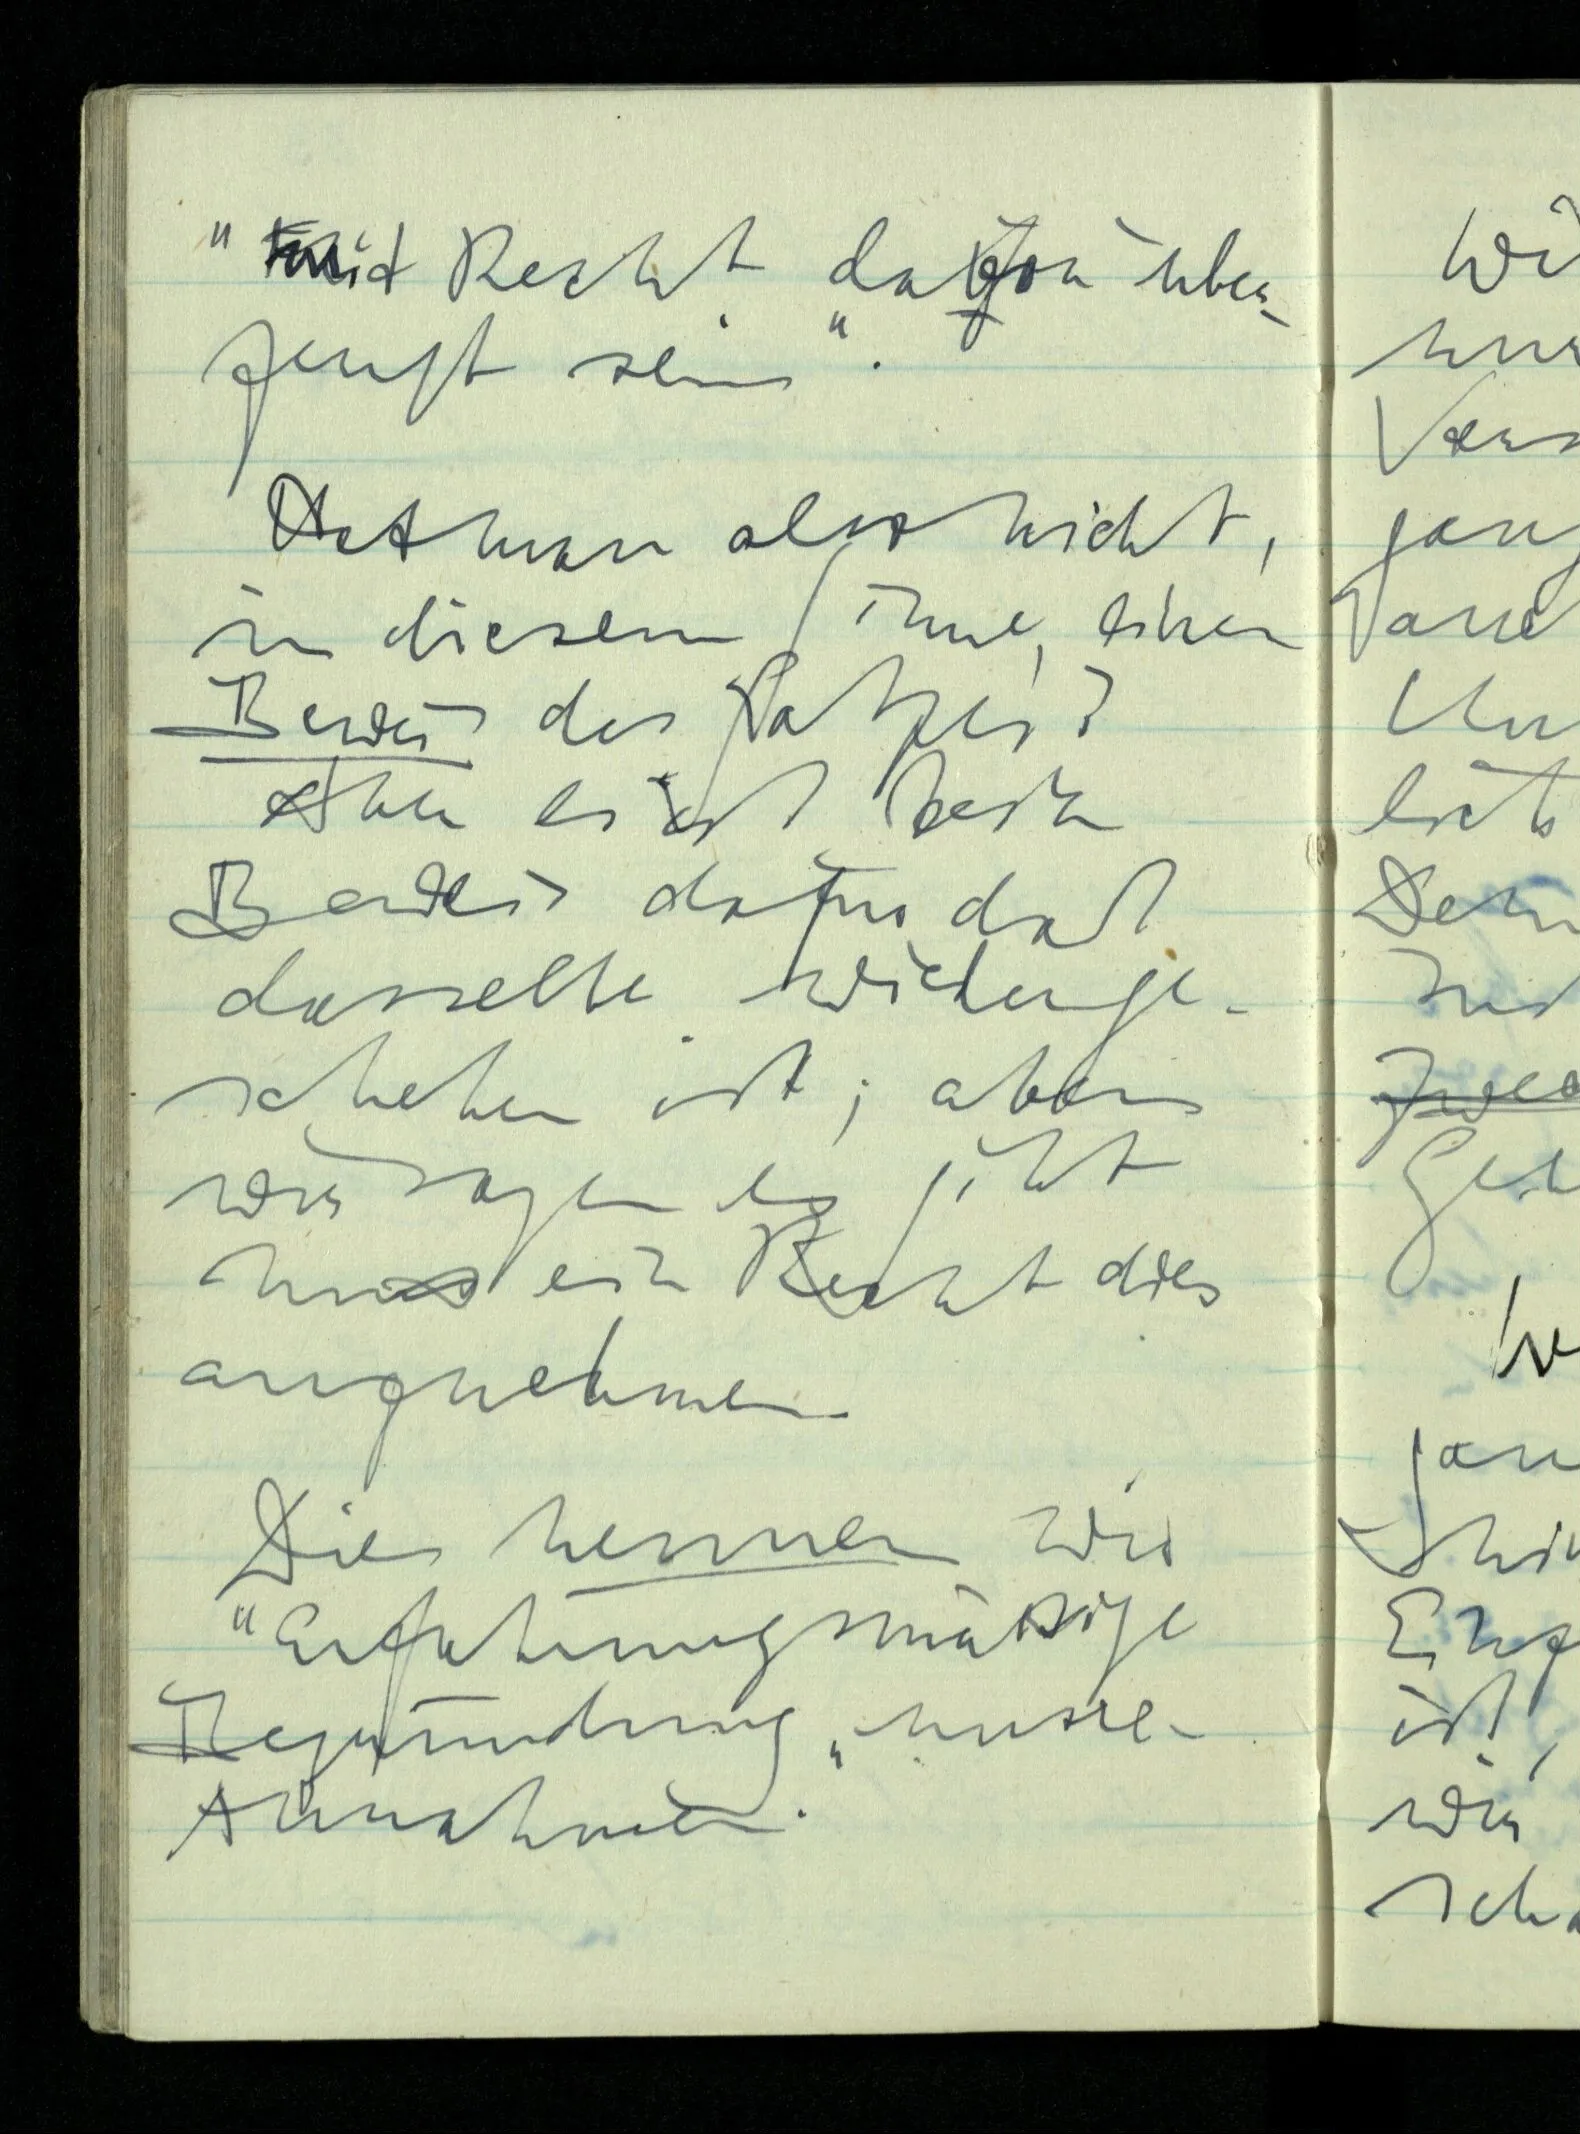 "mit Recht davon über-
zeugt sein".
Hat man also nicht,
in diesem Sinne, einen
Beweis des Satzes?
Aber es ist kein
Beweis dafür daß
dasselbe wiederge-
schehen ist; aber
wir sagen es gibt
uns ein Recht dies
anzunehmen
Dies nennen wir
"Erfahrungsmäßige
Begründung" unserer
Annahmen.
ist,
wir